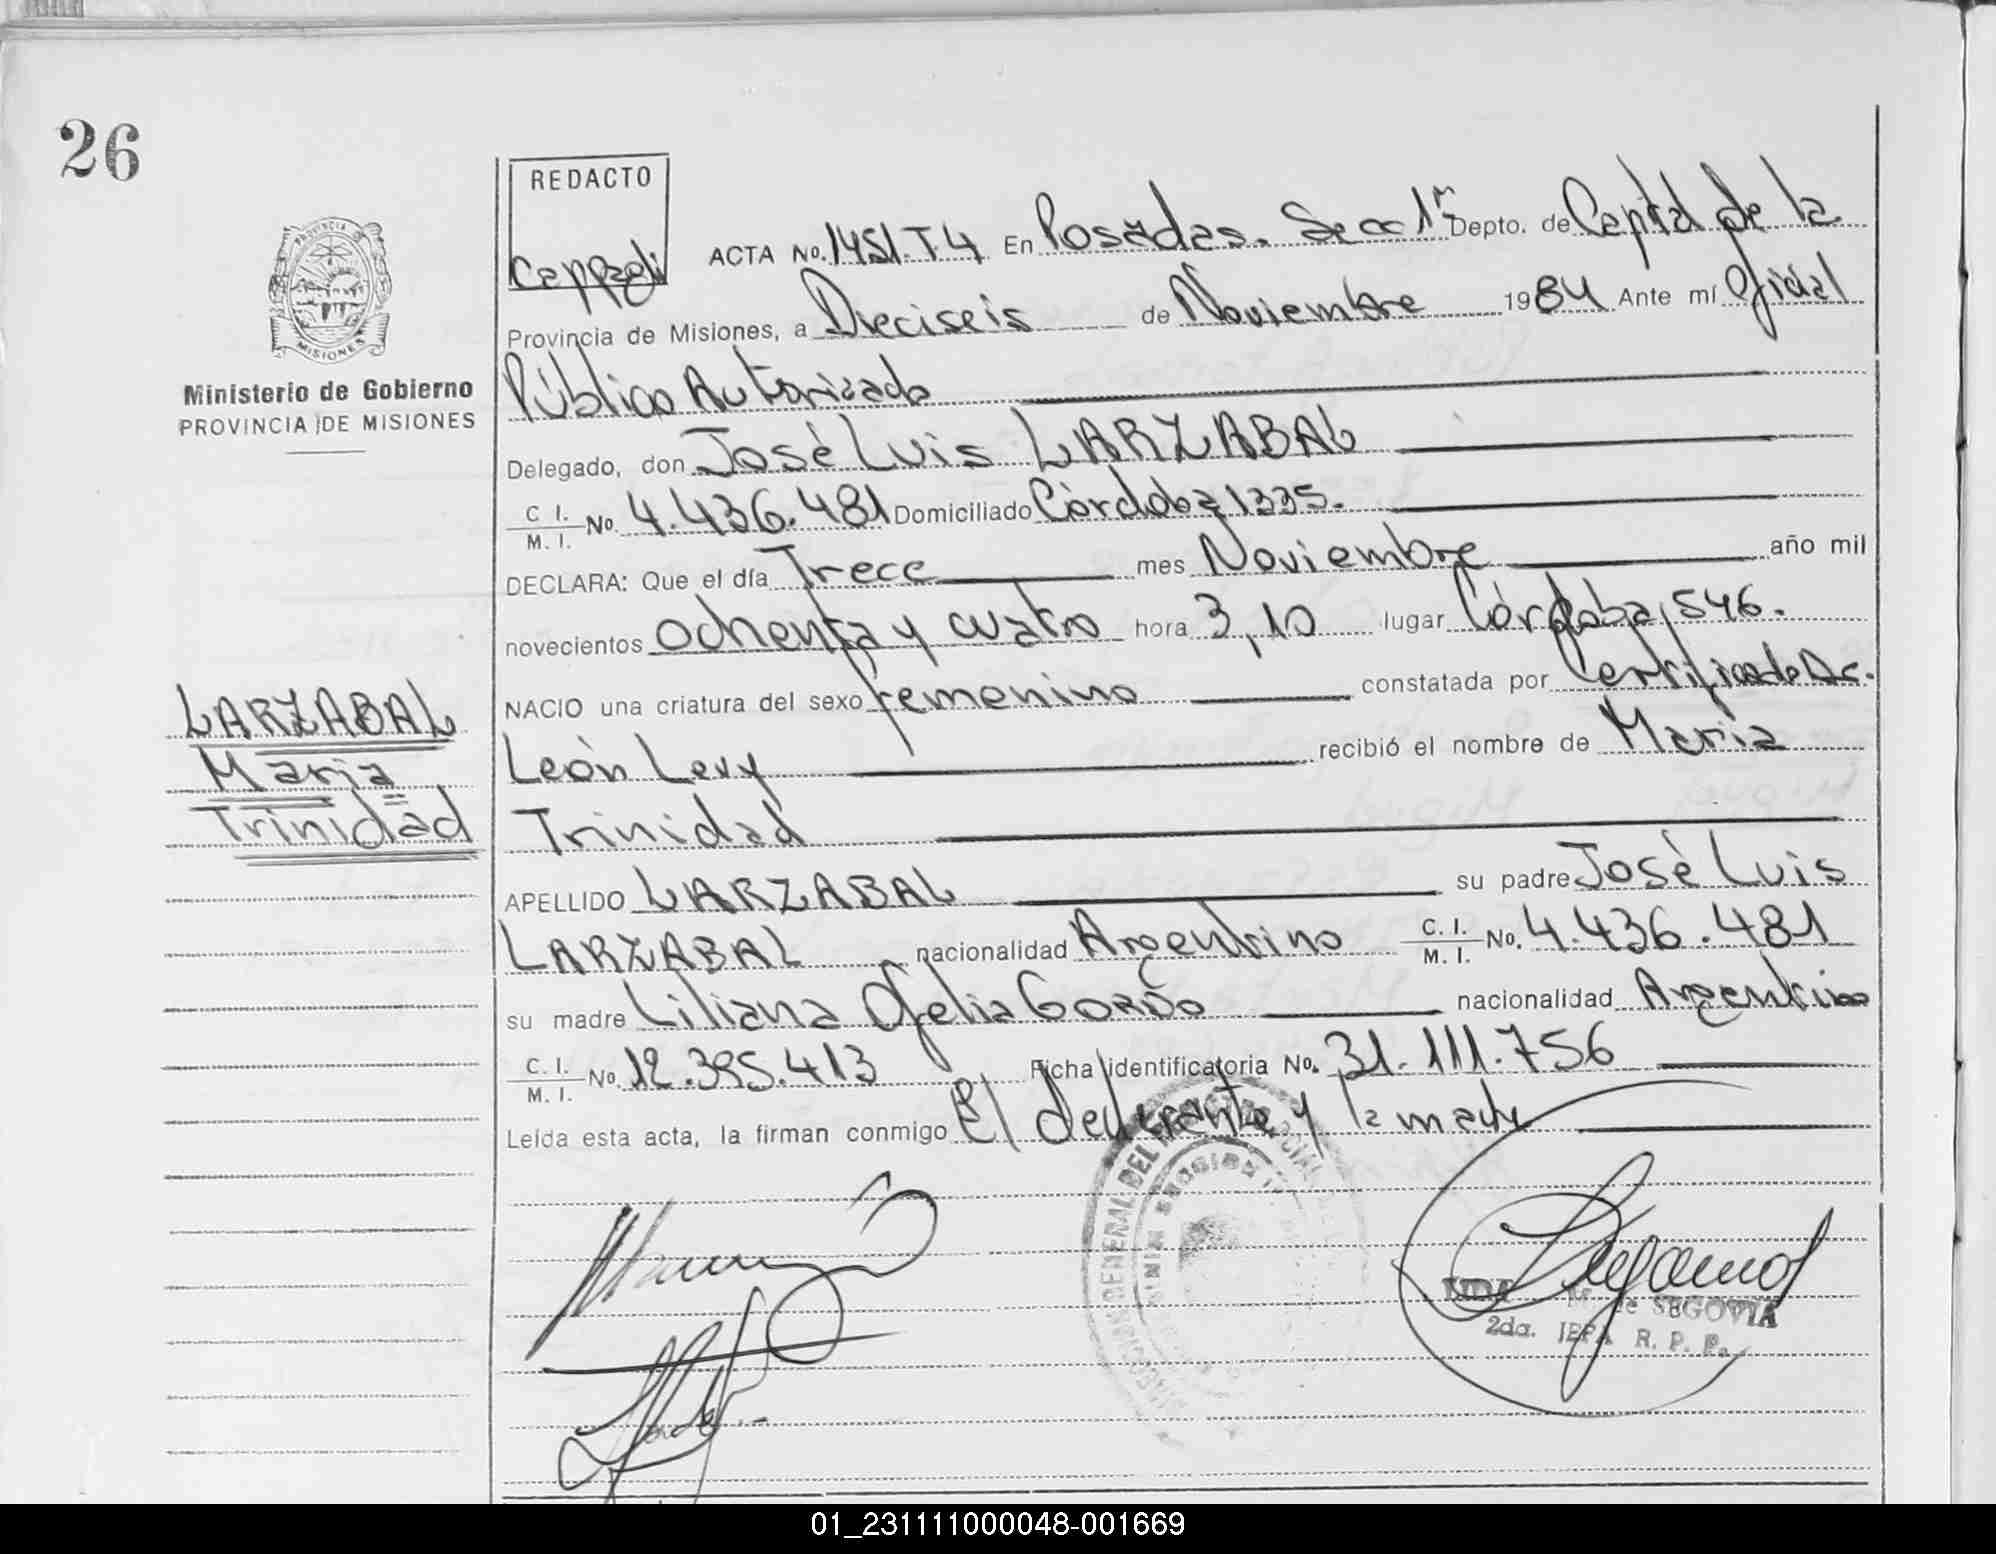 26
REDACTO
Cappeli
ACTA No. 1451.T.4 En Posadas. Secc 1ª Depto. de Capital de la
Provincia de Misiones, a Dieciseis de Noviembre 1984 Ante mí Oficial
Público Autorizado
Delegado, don José Luis LARZABAL
C I. M. I. No. 4.436.481 Domiciliado Córdoba 1335.
DECLARA: Que el día Trece mes Noviembre año mil
novecientos ochenta y cuatro hora 3,10 lugar Córdoba 1546.
NACIO una criatura del sexo femenino constatada por Certificado Dr.
León Levy recibió el nombre de Maria
Trinidad
APELLIDO LARZABAL su padre José Luis
LARZABAL nacionalidad Argentino C. I. M. I. No. 4.436.481
su madre Liliana Ofelia Gordo nacionalidad Argentina
C. I. M. I. No. 12.395.413 Ficha identificatoria No. 31.111.756
Leída esta acta, la firman conmigo El declarante y la madre
PROVINCIA DE
MISIONES
Ministerio de Gobierno
PROVINCIA DE MISIONES
LARZABAL
Maria
Trinidad
GENERAL DEL
M. de SEGOVIA
2da. JEFA R. P. P.
01_231111000048-001669